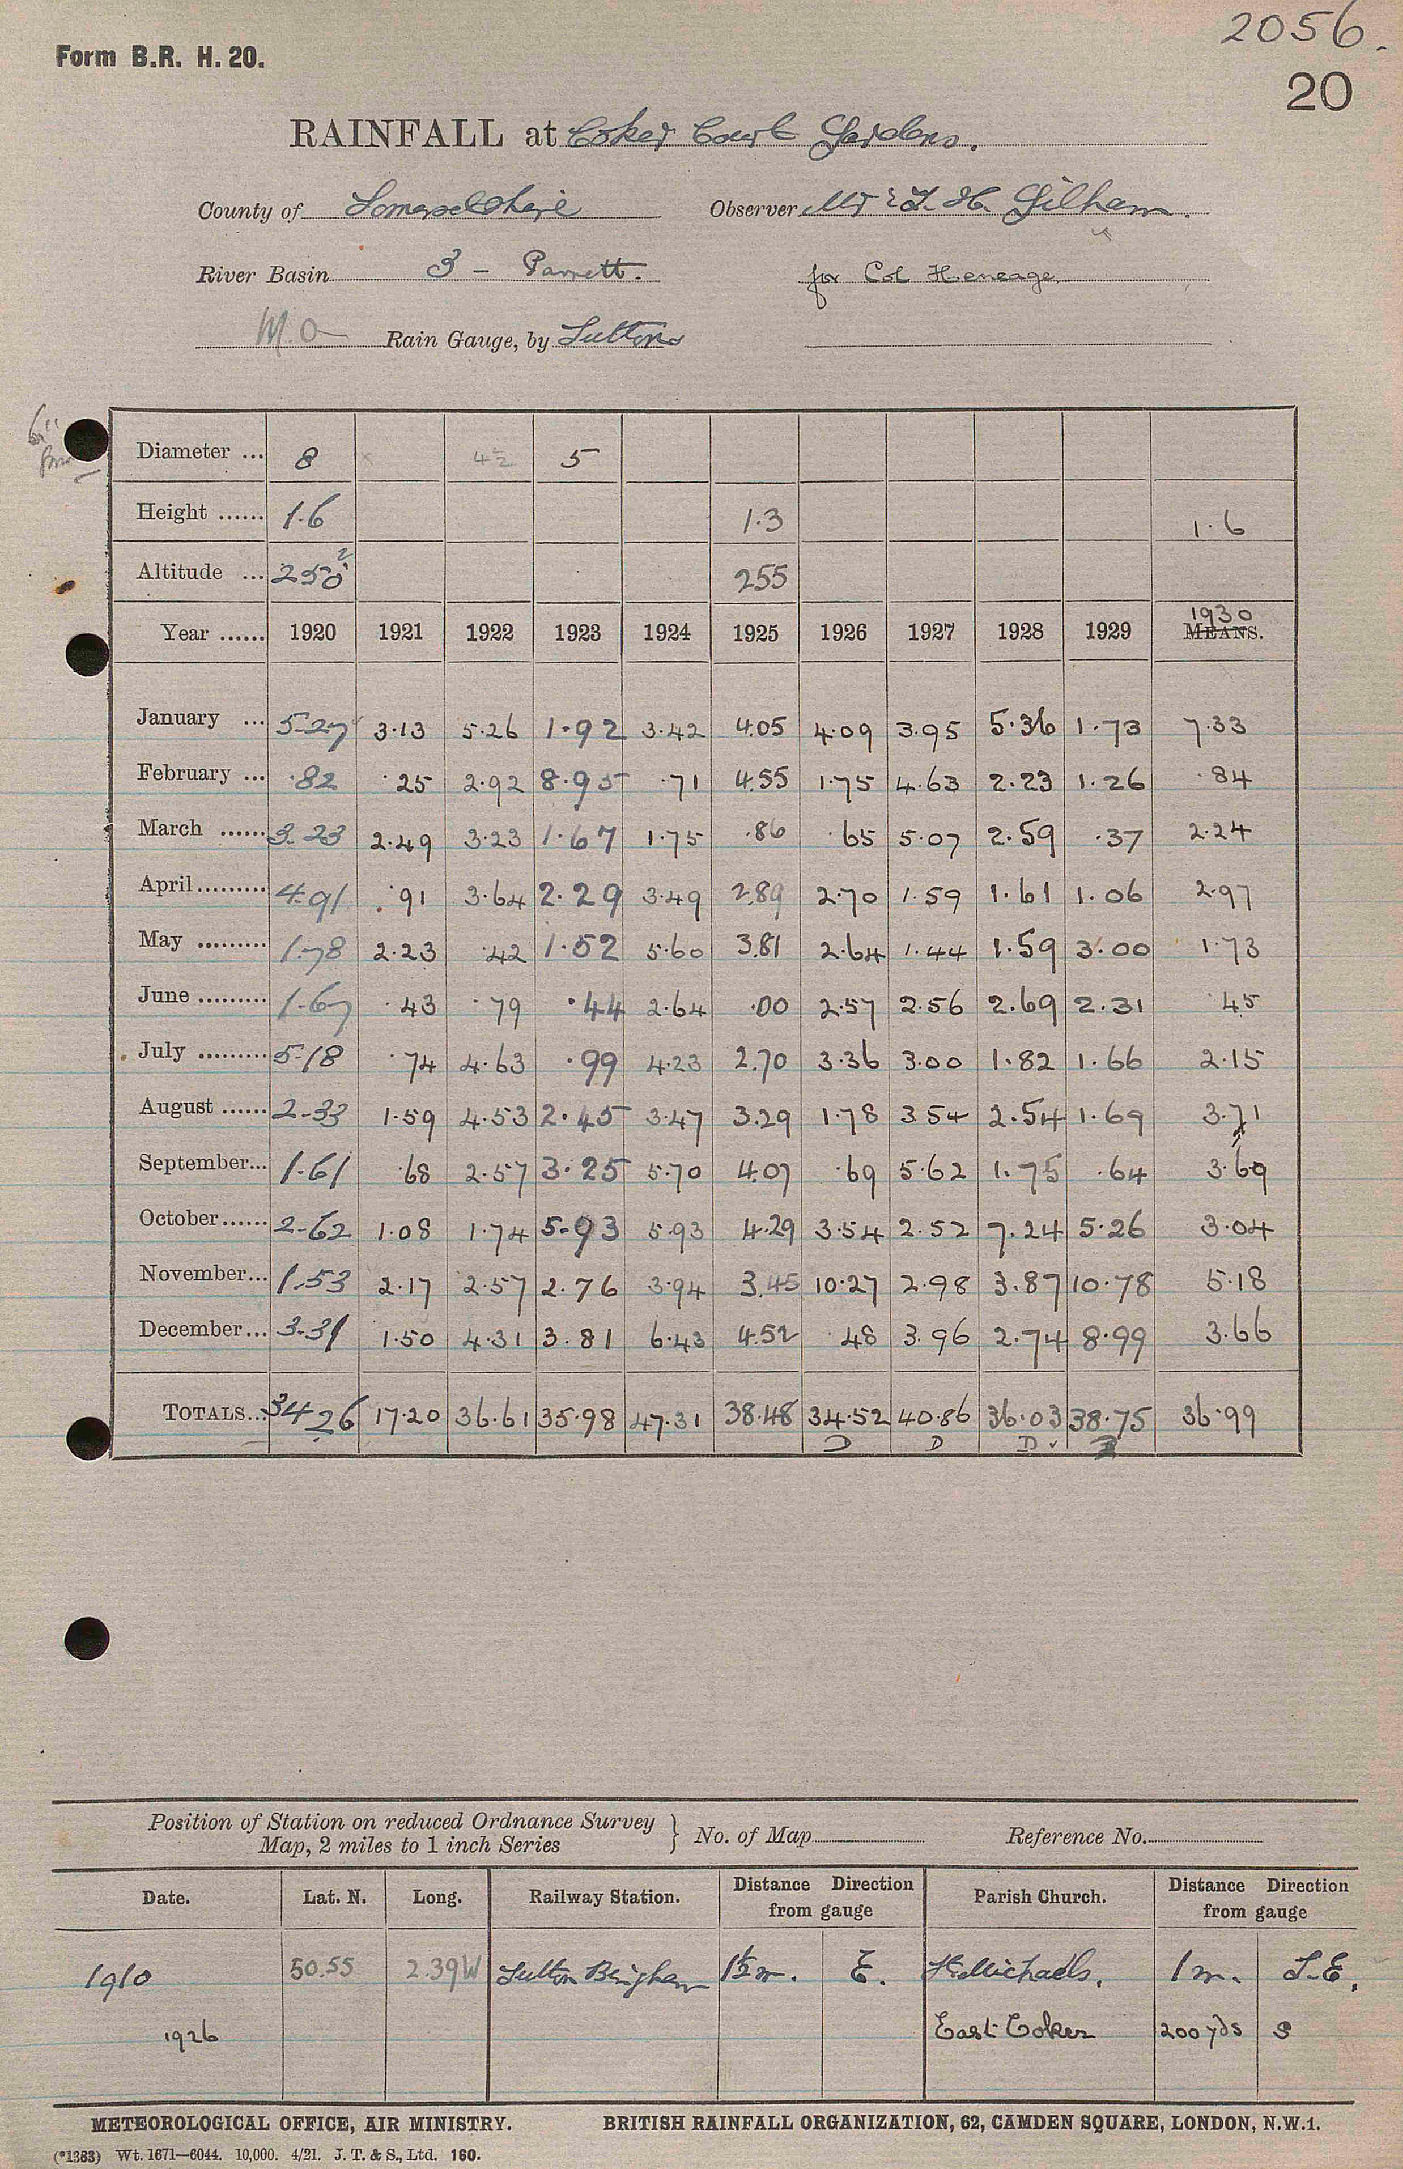 2056.
Form B.R. H. 20.
20
RAINFALL at Coker Court Gardens.
County of Somersetshire Observer Mr T. H. Gilham.
River Basin 3 - Parrett. for Col Heneage
M.O Rain Gauge, by Sutton
6"
Diameter ... 8 4½ 5
Height ...... 1.6 1.3 1.6
Altitude ... 250 ? 255
Year ...... 1920 1921 1922 1923 1924 1925 1926 1927 1928 1929 1930 MEANS.
January ... 5.27 3.13 5.26 1.92 3.42 4.05 4.09 3.95 5.36 1.73 7.33
February ... .82 .25 2.92 8.95 .71 4.55 1.75 4.63 2.23 1.26 .84
March ...... 3.23 2.49 3.23 1.67 1.75 .86 .65 5.07 2.59 .37 2.24
April ......... 4.91 .91 3.64 2.29 3.49 2.89 2.70 1.59 1.61 1.06 2.97
May ......... 1.78 2.23 .42 1.52 5.60 3.81 2.64 1.44 1.59 3.00 1.73
June ......... 1.67 .43 .79 .44 2.64 .00 2.57 2.56 2.69 2.31 .45
July ......... 5.18 .74 4.63 .99 4.23 2.70 3.36 3.00 1.82 1.66 2.15
August ...... 2.33 1.59 4.53 2.45 3.47 3.29 1.78 3.54 2.54 1.69 3.71
September... 1.61 .68 2.57 3.25 5.70 4.07 .69 5.62 1.75 .64 3.69
October...... 2.62 1.08 1.74 5.93 5.93 4.29 3.54 2.52 7.24 5.26 3.04
November... 1.53 2.17 2.57 2.76 3.94 3.45 10.27 2.98 3.87 10.78 5.18
December... 3.31 1.50 4.31 3.81 6.43 4.52 .48 3.96 2.74 8.99 3.66
TOTALS... 34.26 17.20 36.61 35.98 47.31 38.48 34.52 40.86 36.03 38.75 36.99
D D D ✓
Position of Station on reduced Ordnance Survey Map, 2 miles to 1 inch Series } No. of Map Reference No.
Date. Lat. N. Long. Railway Station. Distance Direction from gauge Parish Church. Distance Direction from gauge
1910 50.55 2.39W Sutton Bingham 1½ m. E. St Michaels. 1 m. S.E.
1926 East Coker 200 yds S
METEOROLOGICAL OFFICE, AIR MINISTRY. BRITISH RAINFALL ORGANIZATION, 62, CAMDEN SQUARE, LONDON, N.W.1.
(*1383) Wt. 1671—6044. 10,000. 4/21. J. T. & S., Ltd. 160.